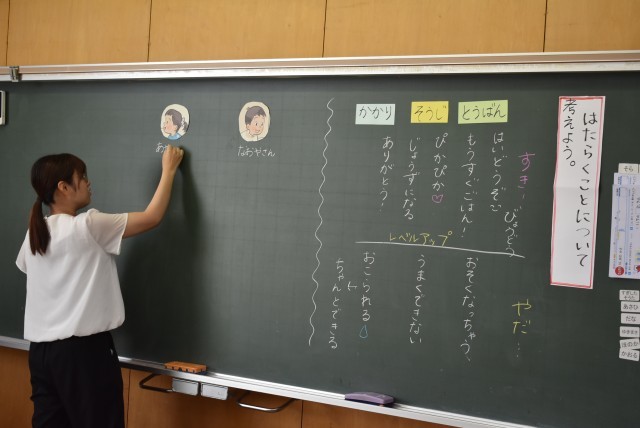 はたらくことについて
考えよう。
すき…
びょうどう
とうばん
はいどうぞ
もうすぐごはん！
そうじ
ぴかぴか♡
じょうずになる
かかり
ありがとう！
レベルアップ
やだ…
おそくなっちゃう、
うまくできない
おこられる
ちゃんとできる
なおやさん
あ